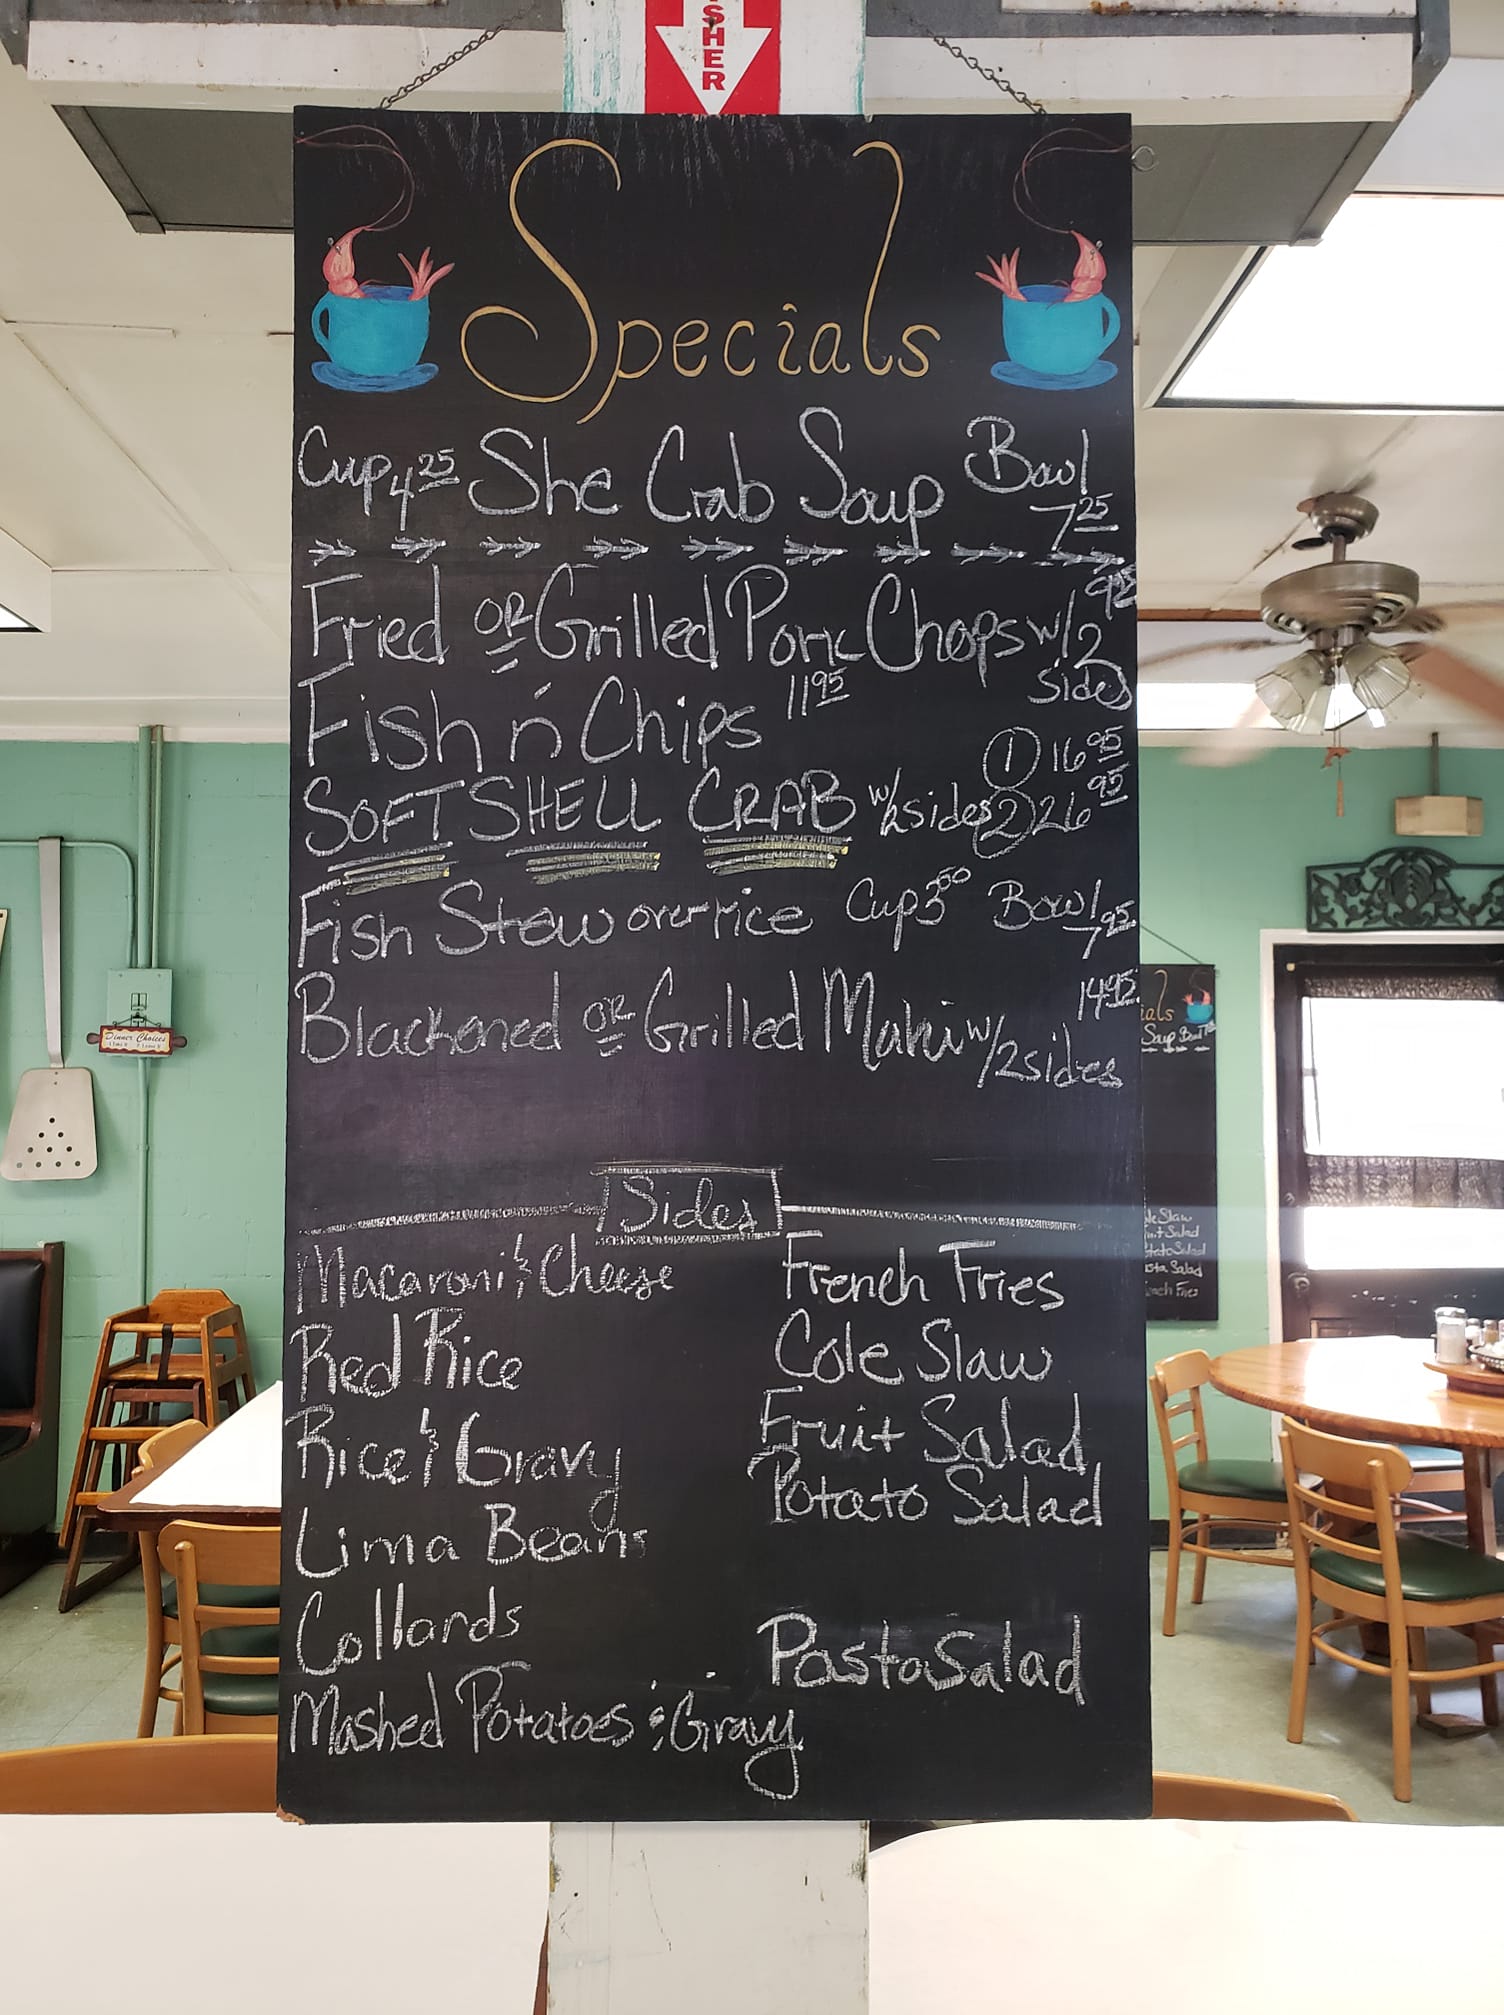 SHER
Specials
Cup 4 25 She Crab Soup Bowl 7 25
Fried OR Grilled Pork Chops w/2 sides 9 95
Fish n' Chips 11 95
SOFT SHELL CRAB w/2 sides 1 16 95
2 26 95
Fish Stew over rice Cup 3 50 Bowl 7 95
Blackened OR Grilled Mahi w/2 sides 14 95
Sides
Macaroni & Cheese
Red Rice
Rice & Gravy
Lima Beans
Collards
Mashed Potatoes & Gravy
French Fries
Cole Slaw
Fruit Salad
Potato Salad
Pasta Salad
Dinner Choices
ials
Soup Bowl
le Slaw
uit Salad
tato Salad
sta Salad
ench Fries